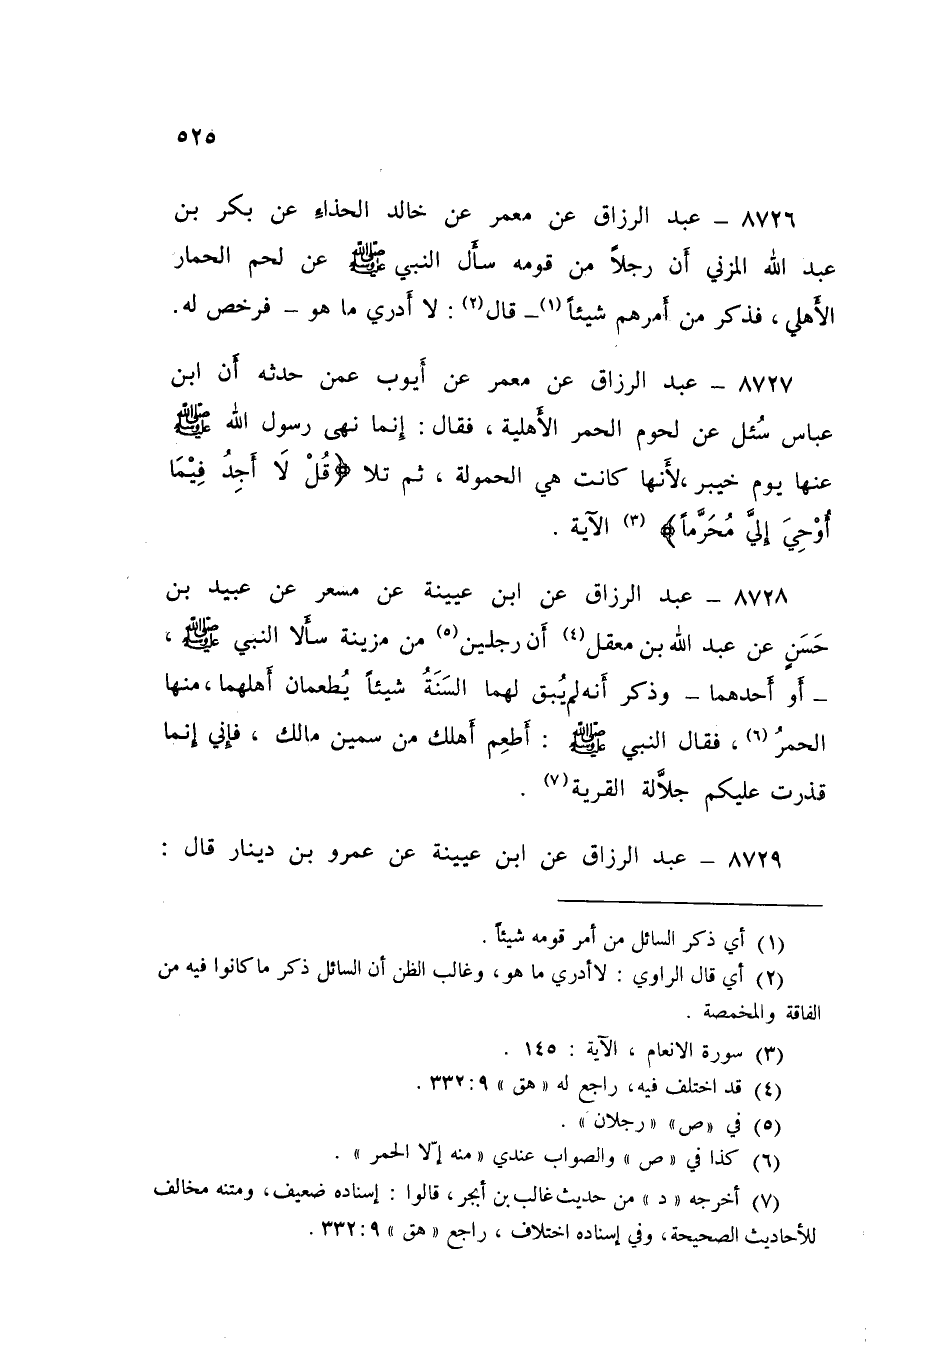 ٥٢٥
٨٧٢٦ – عبد الرزاق عن معمر عن خالد الحذاء عن بكر بن
عبد الله المزني أن رجلاً من قومه سأل النبي ﷺ عن لحم الحمار
الأهلي ، فذكر من أمرهم شيئاً (١) – قال (٢) : لا أدري ما هو – فرخص له .
٨٧٢٧ – عبد الرزاق عن معمر عن أيوب عمن حدثه أن ابن
عباس سُئل عن لحوم الحمر الأهلية ، فقال : إنما نهى رسول الله ﷺ
عنها يوم خيبر ، لأنها كانت هي الحمولة ، ثم تلا ﴿قُلْ لَا أَجِدُ فِيْمَا
أُوْحِيَ إِلَيَّ مُحَرَّماً﴾ (٣) الآية .
٨٧٢٨ – عبد الرزاق عن ابن عيينة عن مسعر عن عبيد بن
حَسَنٍ عن عبد الله بن معقل (٤) أن رجلين (٥) من مزينة سألا النبي ﷺ ،
– أو أحدهما – وذكر أنه لم يُبق لهما السَنَةُ شيئاً يُطعمان أهلهما ، منها
الحمرُ (٦) ، فقال النبي ﷺ : أطعِم أهلك من سمين مالك ، فإني إنما
قذرت عليكم جلاَّلة القرية (٧) .
٨٧٢٩ – عبد الرزاق عن ابن عيينة عن عمرو بن دينار قال :
(١) أي ذكر السائل من أمر قومه شيئاً .
(٢) أي قال الراوي : لا أدري ما هو ، وغالب الظن أن السائل ذكر ما كانوا فيه من
الفاقة والمخمصة .
(٣) سورة الانعام ، الآية : ١٤٥ .
(٤) قد اختلف فيه ، راجع له « هق » ٩ : ٣٣٢ .
(٥) في «ص» « رجلان » .
(٦) كذا في « ص » والصواب عندي « منه إلّا الحمر » .
(٧) أخرجه « د » من حديث غالب بن أبجر ، قالوا : إسناده ضعيف ، ومتنه مخالف
للأحاديث الصحيحة ، وفي إسناده اختلاف ، راجع « هق » ٩ : ٣٣٢ .